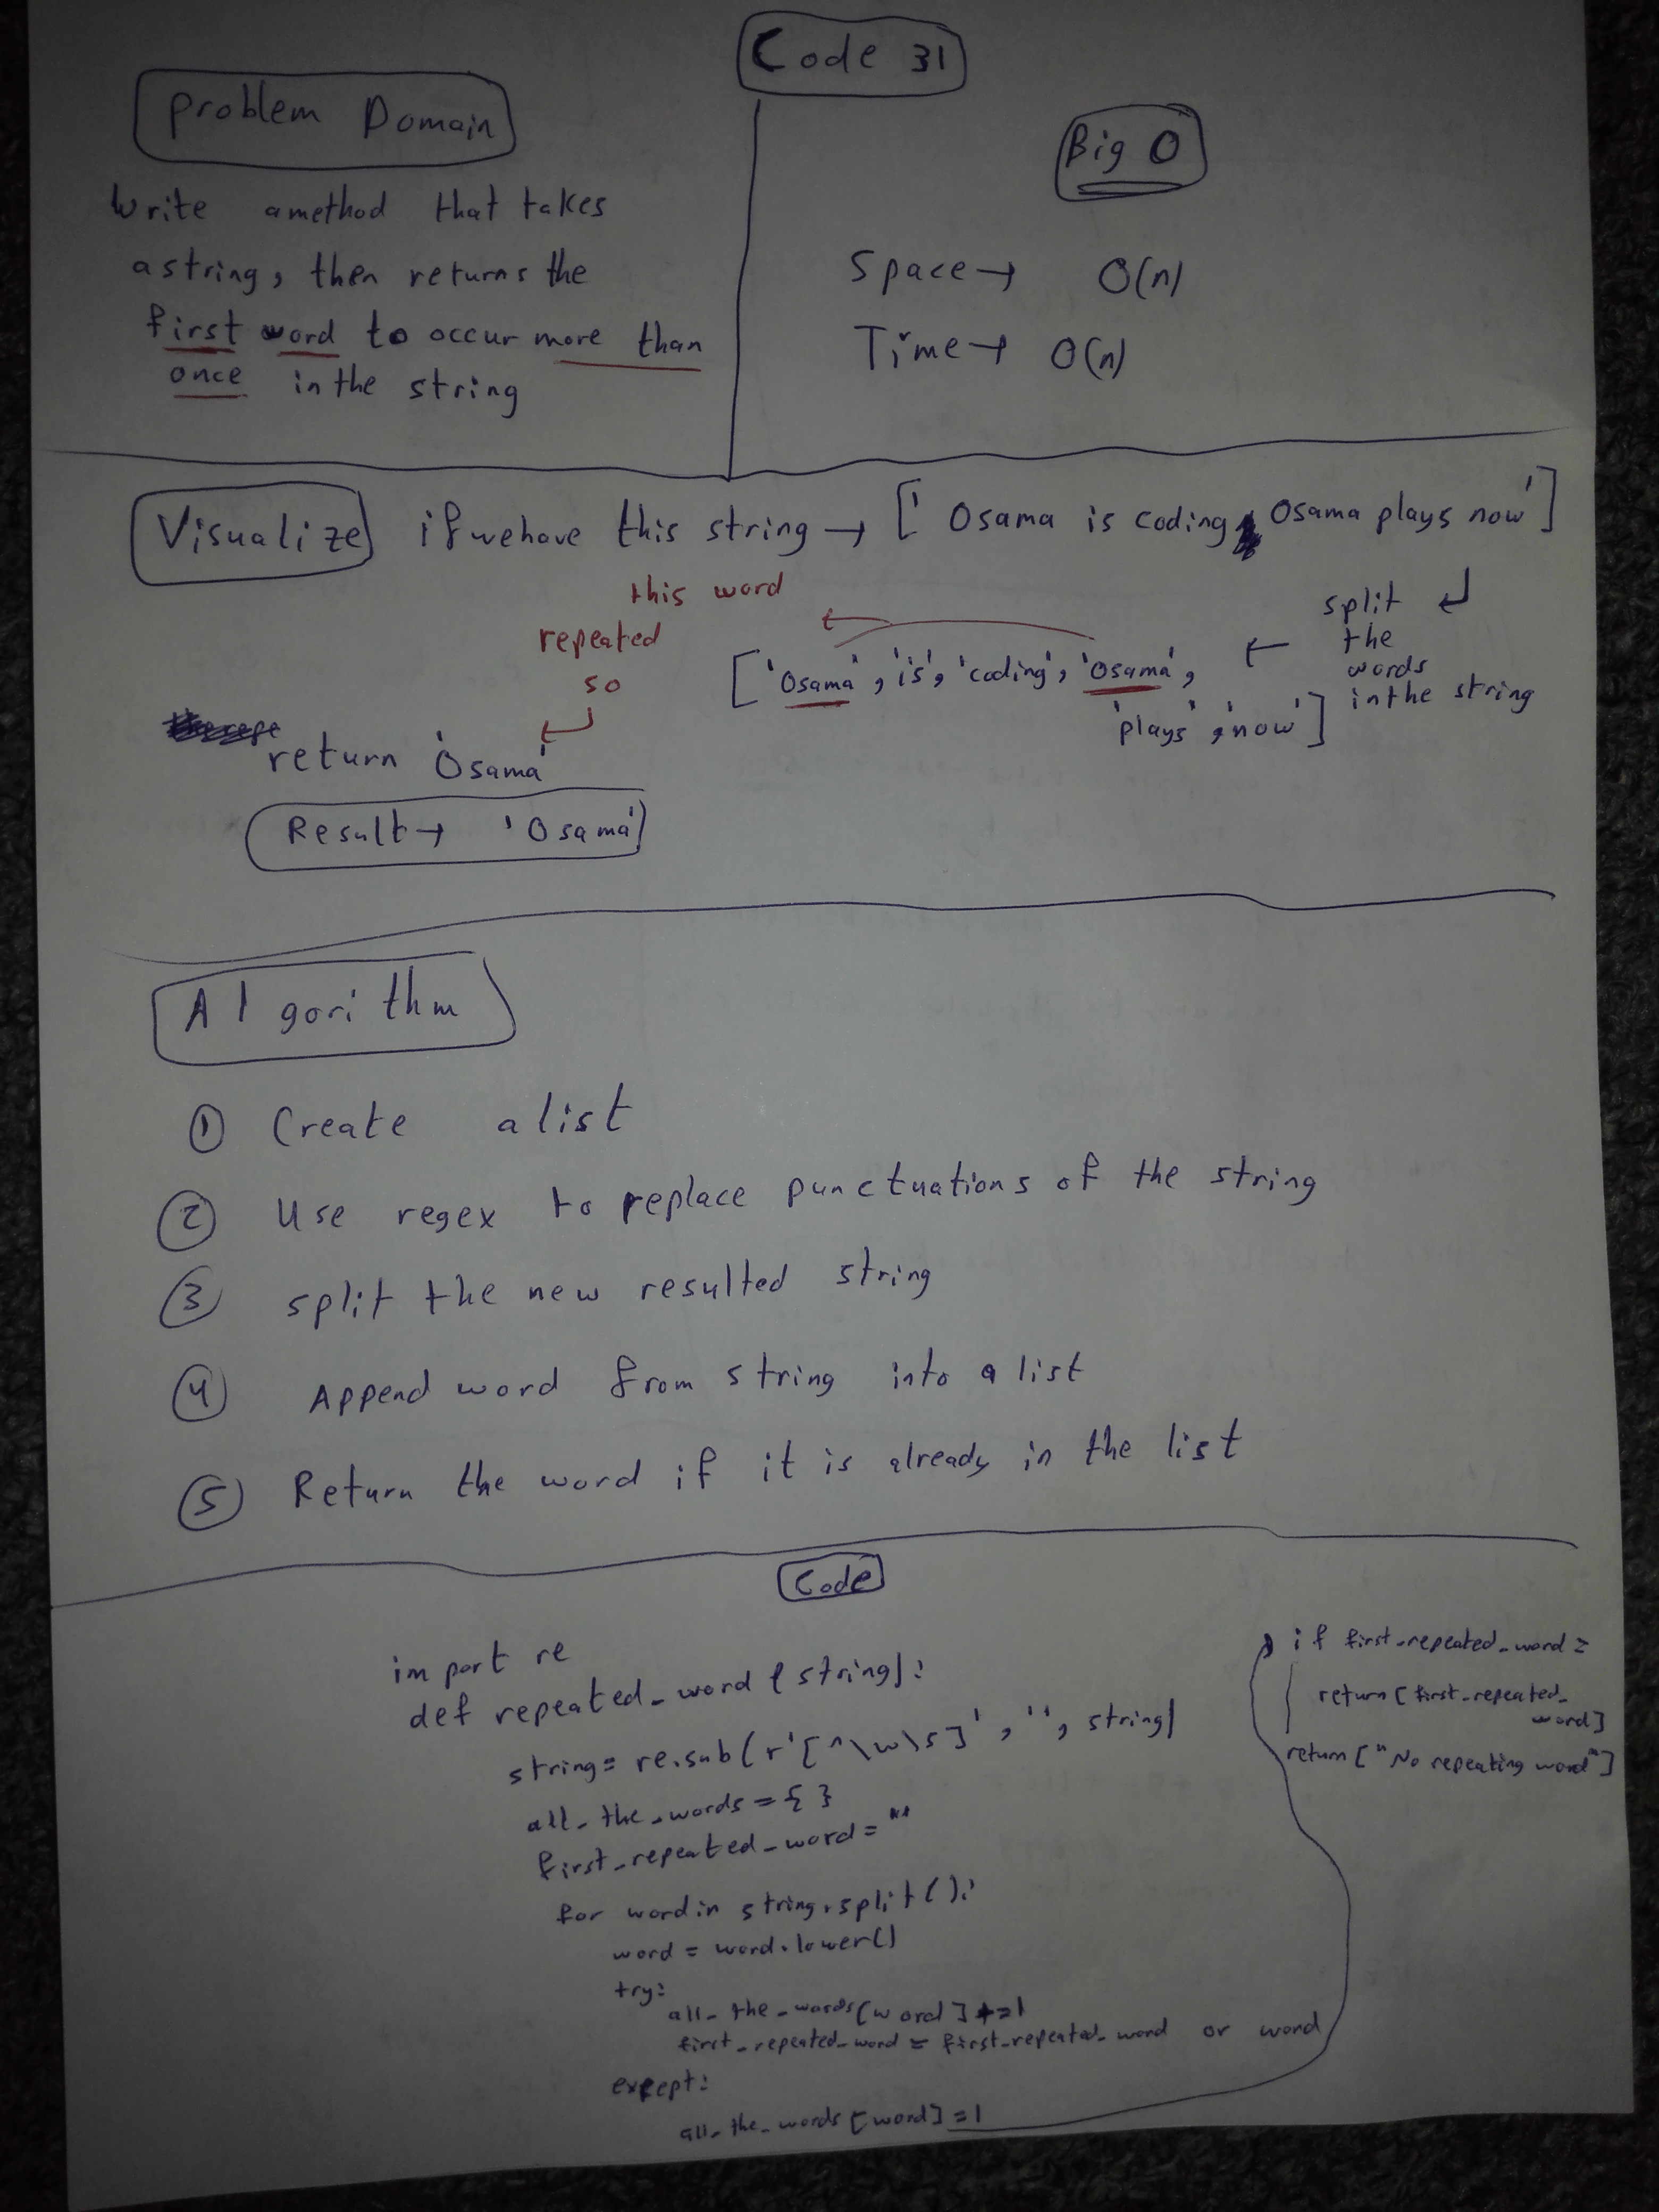 Code 31
Problem Domain
Write a method that takes
a string, then returns the
first word to occur more than
once in the string
Big O
Space → O(n)
Time → O(n)
Visualize if we have this string → [' Osama is coding, Osama plays now']
split
the
words
in the string
['Osama', 'is', 'coding', 'Osama',
'plays', 'now']
this word
repeated
so
return 'Osama'
Result → 'Osama'
Algorithm
① Create a list
② Use regex to replace punctuations of the string
③ split the new resulted string
④ Append word from string into a list
⑤ Return the word if it is already in the list
Code
import re
def repeated_word (string):
string = re.sub(r'[^\w\s]', '', string)
all_the_words = { }
first_repeated_word = ""
for word in string.split():
word = word.lower()
try:
all_the_words[word] +=1
first_repeated_word = first_repeated_word or word
except:
all_the_words[word] =1
if first_repeated_word:
return [first_repeated_
word]
return ["No repeating word"]